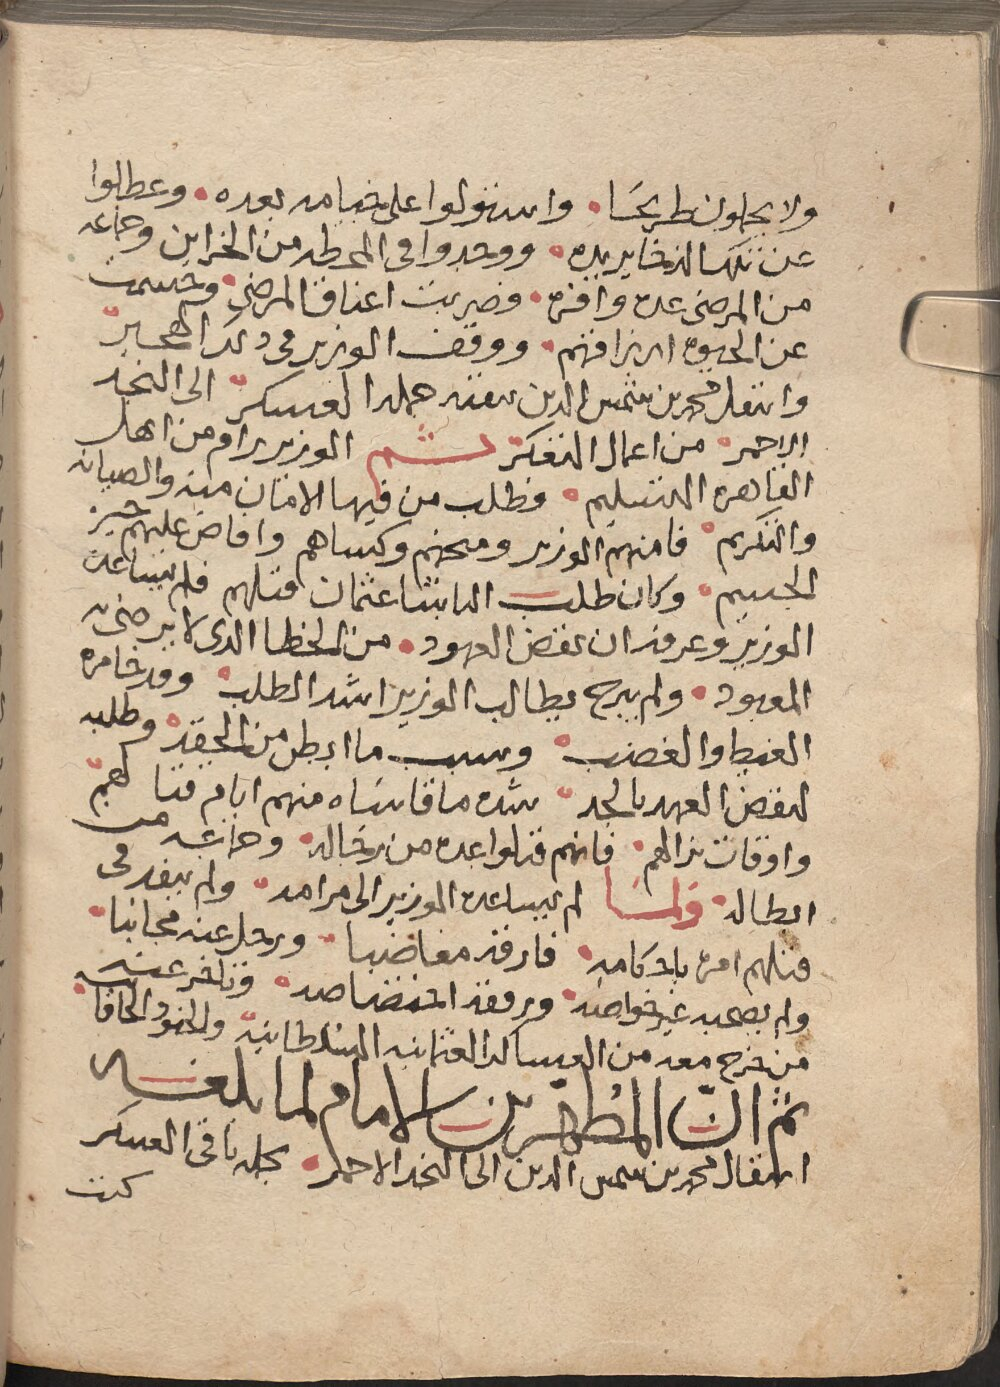 ولا يجلون طريحًا • واستولوا على خيامه بعده • وعطلوا
عن تلك الذخاير يده • ووجدوا في المحطه من الخزاين وجماعه
من المرضى عده وافره • وضربت اعناق المرضى • وحسمت
عن الحيوه ارزاقهم • ووقف الوزير في ذلك الهجير
وانتقل محمد بن شمس الدين بقية هملا العسكر • الى النجد
الاحمر • من اعمال التعكر ثم الوزير رام من اهل
القاهره التسليم • وطلب من فيها الامان منه والصيانه
والتكريم • فامنهم الوزير ومنحهم وكساهم وافاض عليهم خيره
الجسيم • وكان طلب الباشا عثمان قتلهم فلم يساعده
الوزير وعرفه ان نقض العهود • من الخطا الذي لا يرضى به
المعبود • ولم يبرح يطالب الوزير اشد الطلب • وقد خامره
الغيظ والغضب • وسبب ما ابطن من الحقد • وطلبه
لنقض العهد بالجد • شده ما قاساه منهم ايام قتالهم
واوقات نزالهم • فانهم قتلوا عده من رجاله • وجماعه من
ابطاله • ولما لم يساعده الوزير الى مرامه • ولم ينفد في
قتلهم امره باحكامه • فارقه مغاضبا • ورحل عنه مجانبا •
ولم يصحبه غير خواصه • ورفقة اختصاصه • وتاخر عنه
من خرج معه من العساكر العثمانيه السلطانيه • والجنود الخاقانيه
ثم ان المطهر بن الامام لما بلغه
انتقال محمد بن شمس الدين الى النجد الاحمر • بجل باقي العسكر
كتب